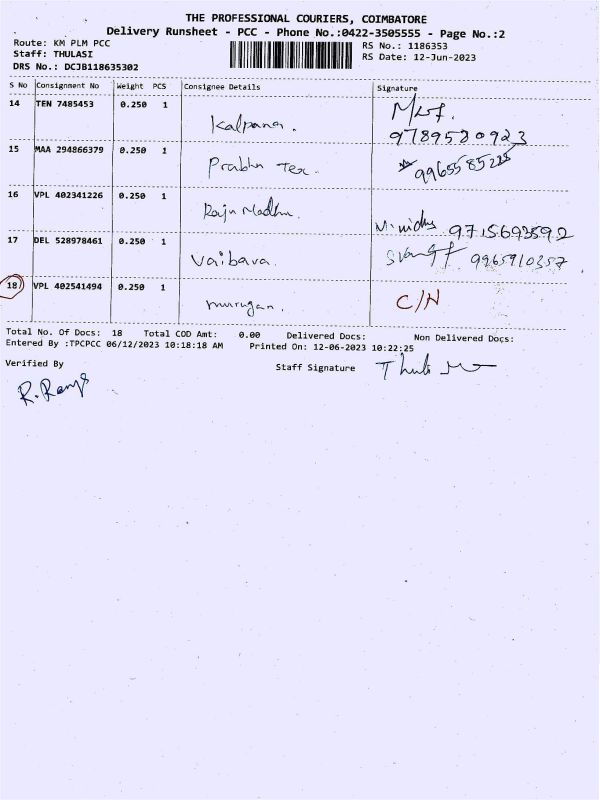 THE PROFESSIONAL COURIERS, COIMBATORE
Delivery Runsheet - PCC - Phone No.:0422-3505555 - Page No.:2
Route: KM PLM PCC
Staff: THULASI
DRS No.: DCJB118635302
RS No.: 1186353
RS Date: 12-Jun-2023
S No Consignment No Weight PCS Consignee Details Signature
14 TEN 7485453 0.250 1 Kalpana. 9789520923
15 MAA 294866379 0.250 1 Prabhu Tex. 9965585225
16 VPL 402341226 0.250 1 Raju Madhu. 9715693592
17 DEL 528978461 0.250 1 Vaibava. 9965910357
18 VPL 402541494 0.250 1 murugan. C/N
Total No. Of Docs: 18 Total COD Amt: 0.00 Delivered Docs: Non Delivered Docs:
Entered By :TPCPCC 06/12/2023 10:18:18 AM Printed On: 12-06-2023 10:22:25
Verified By Staff Signature